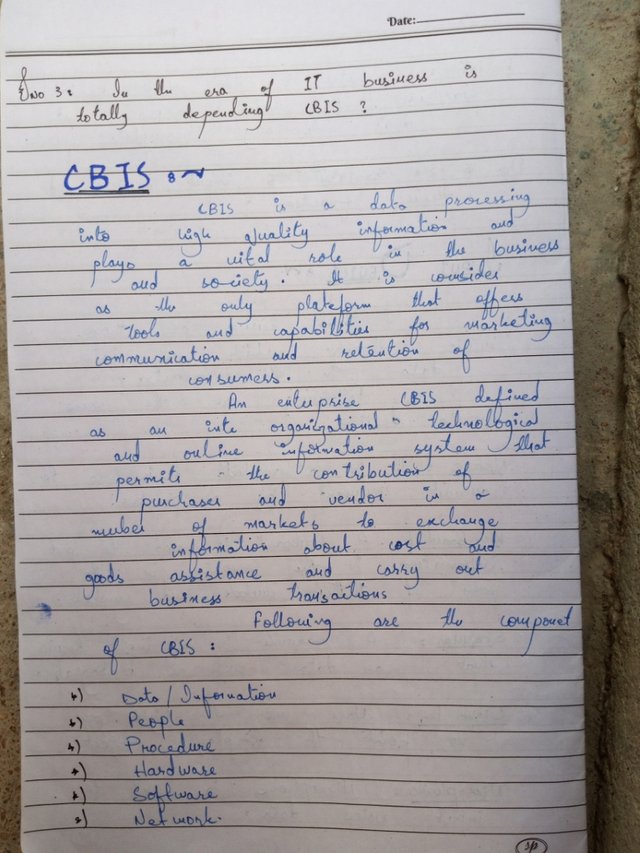 Date:
Qno 3: In the era of IT business is
totally depending CBIS ?
CBIS :~
CBIS is a data processing
into high quality information and
plays a vital role in the business
and society. It is consider
as the only plateform that offers
tools and capabilities for marketing
communication and retention of
consumers.
An enterprise CBIS defined
as an inte organizational technological
and online information system that
permits the contribution of
purchaser and vendor in a
number of markets to exchange
information about cost and
goods assistance and carry out
business transactions
Following are the componet
of CBIS :
Data / Information
People
Procedure
Hardware
Software
Network.